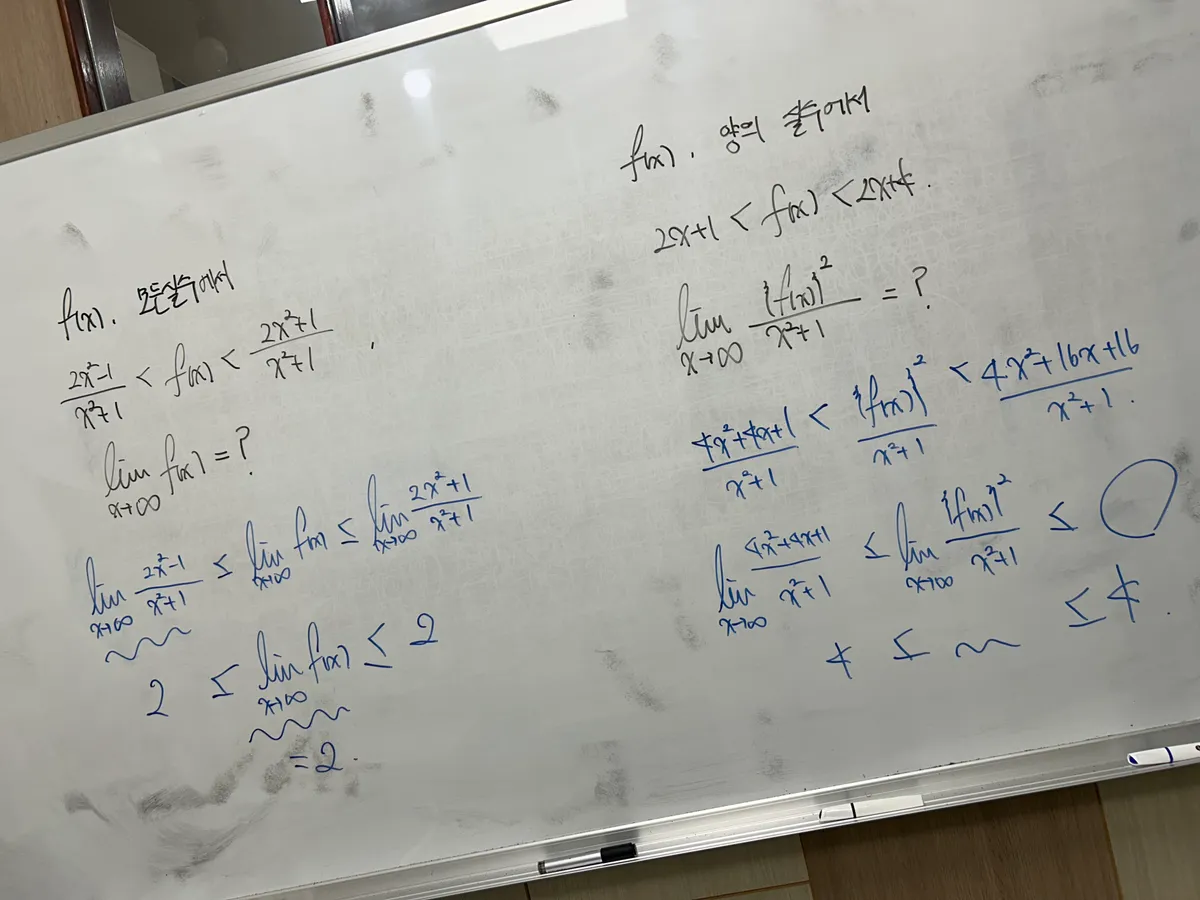 f(x). 모든실수에서
\frac{2x^2-1}{x^2+1} < f(x) < \frac{2x^2+1}{x^2+1},
\lim_{x→∞} f(x) = ?
\lim_{x→∞} \frac{2x^2-1}{x^2+1} ≤ \lim_{x→∞} f(x) ≤ \lim_{x→∞} \frac{2x^2+1}{x^2+1}
2 ≤ \lim_{x→∞} f(x) ≤ 2
= 2.
f(x). 양의 실수에서
2x+1 < f(x) < 2x+4.
\lim_{x→∞} \frac{\{f(x)\}^2}{x^2+1} = ?
\frac{4x^2+4x+1}{x^2+1} < \frac{\{f(x)\}^2}{x^2+1} < \frac{4x^2+16x+16}{x^2+1}.
\lim_{x→∞} \frac{4x^2+4x+1}{x^2+1} ≤ \lim_{x→∞} \frac{\{f(x)\}^2}{x^2+1} ≤ ◯
4 ≤ ~ ≤ 4.